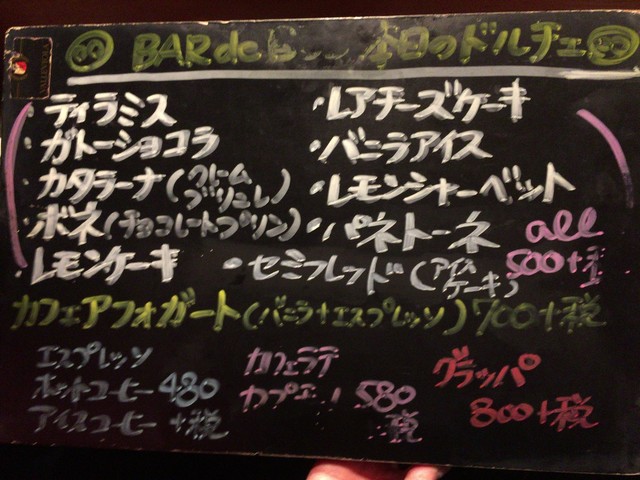 BAR de 本日のドルチェ
・ティラミス ・レアチーズケーキ
・ガトーショコラ ・バニラアイス
・カタラーナ(クリームブリュレ) ・レモンシャーベット
・ボネ(チョコレートプリン) ・パネトーネ all
・レモンケーキ ・セミフレッド(アイスケーキ) 500+
カフェアフォガート(バニラ+エスプレッソ) 700+税
エスプレッソ カフェラテ グラッパ
ホットコーヒー 480 580 800+税
アイスコーヒー +税 税